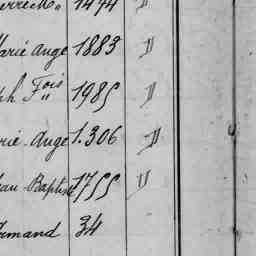 1474 "
Marie Ange 1883 "
ph Fois 1985 "
rie-Ange 1.306 "
ean-Baptiste 1755 "
rmand 34